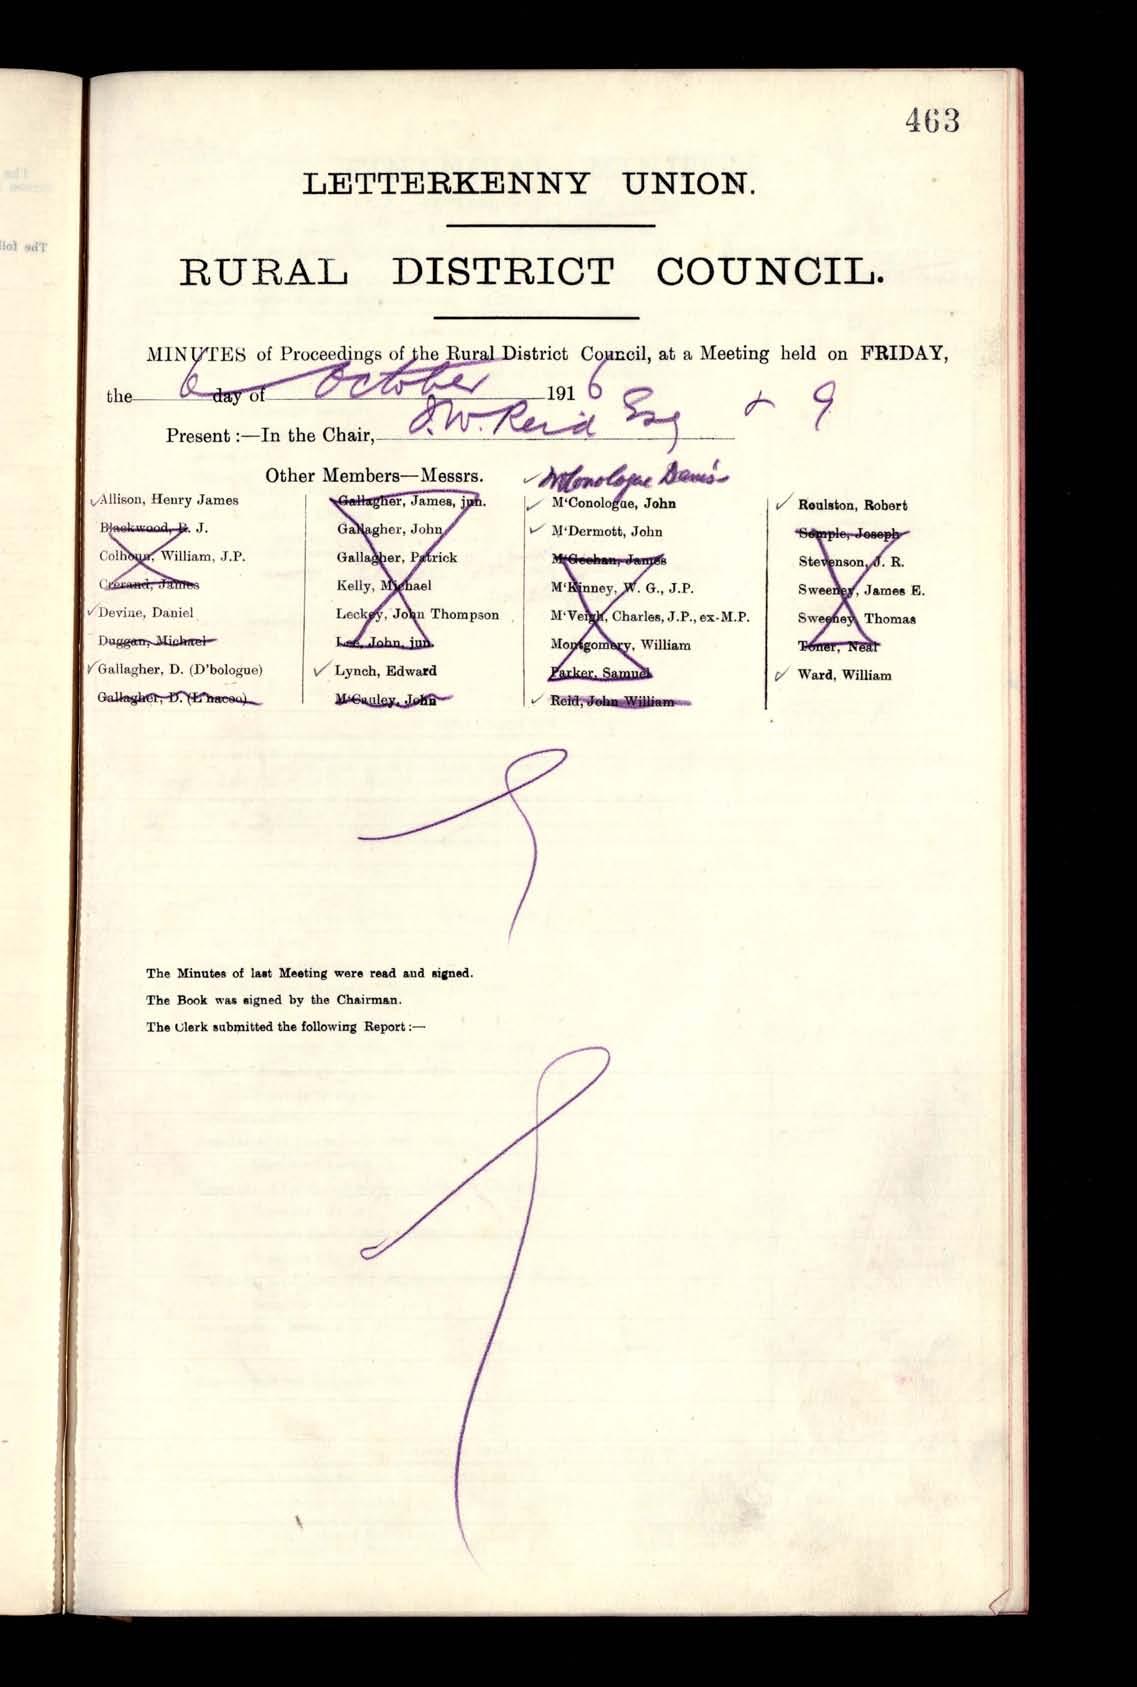 463
LETTERKENNY UNION.
RURAL DISTRICT COUNCIL.
MINUTES of Proceedings of the Rural District Council, at a Meeting held on FRIDAY,
the 6 day of October 1916
Present :—In the Chair, J. W. Reid Esq + 9
Other Members—Messrs.
Allison, Henry James
Blackwood, R. J.
Colhoun, William, J.P.
Crerand, James
Devine, Daniel
Duggan, Michael
Gallagher, D. (D'bologue)
Gallagher, D. (L'nacoo)
Gallagher, James, jun.
Gallagher, John
Gallagher, Patrick
Kelly, Michael
Leckey, John Thompson
Lee, John, jun.
Lynch, Edward
M'Cauley, John
McConologue Denis
M'Conologue, John
M'Dermott, John
M'Geehan, James
M'Kinney, W. G., J.P.
M'Veigh, Charles, J.P., ex-M.P.
Montgomery, William
Parker, Samuel
Reid, John William
Roulston, Robert
Semple, Joseph
Stevenson, J. R.
Sweeney, James E.
Sweeney, Thomas
Toner, Neal
Ward, William
The Minutes of last Meeting were read and signed.
The Book was signed by the Chairman.
The Clerk submitted the following Report :—